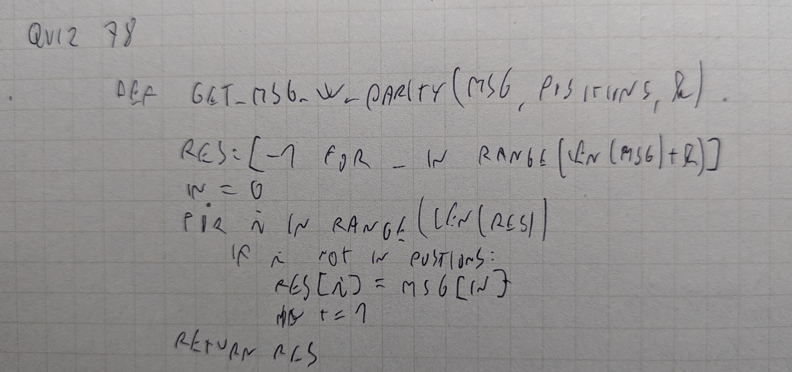 QUIZ 78
DEF GET_MSG_W_PARITY(MSG, POSITIONS, R).
RES=[-1 FOR _ IN RANGE(LEN(MSG)+R)]
IN = 0
FOR i IN RANGE(LEN(RES)
IF i not IN POSTIONS:
RES[i] = MSG[IN]
+= 1
RETURN RES